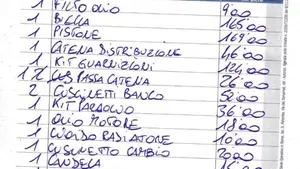 1 FILTRO OLIO 9,00
1 BIELLA 165,00
1 PISTONE 169,00
1 CATENA DISTRIBUZIONE 46,00
1 KIT GUARNIZIONI 124,00
1 PASSA CATENA 26,00
2 CUSCINETTI BANCO 52,00
1 KIT PARAOLIO 36,00
1 OLIO MOTORE 18,00
1 LIQUIDO RADIATORE 10,00
1 CUSCINETTO CAMBIO 20,00
1 CANDELA